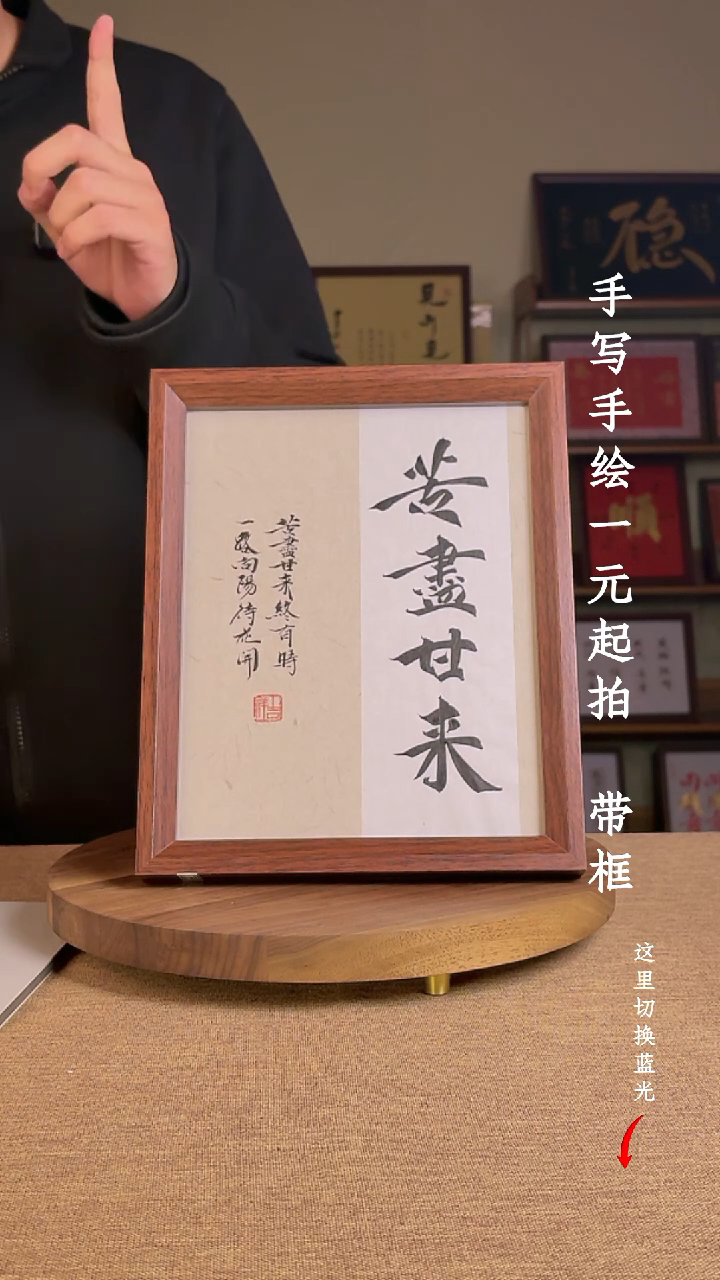 手写手绘一元起拍 带框
这里切换蓝光
苦盡甘来
苦盡甘来終有時
一路向陽待花開
隐
順